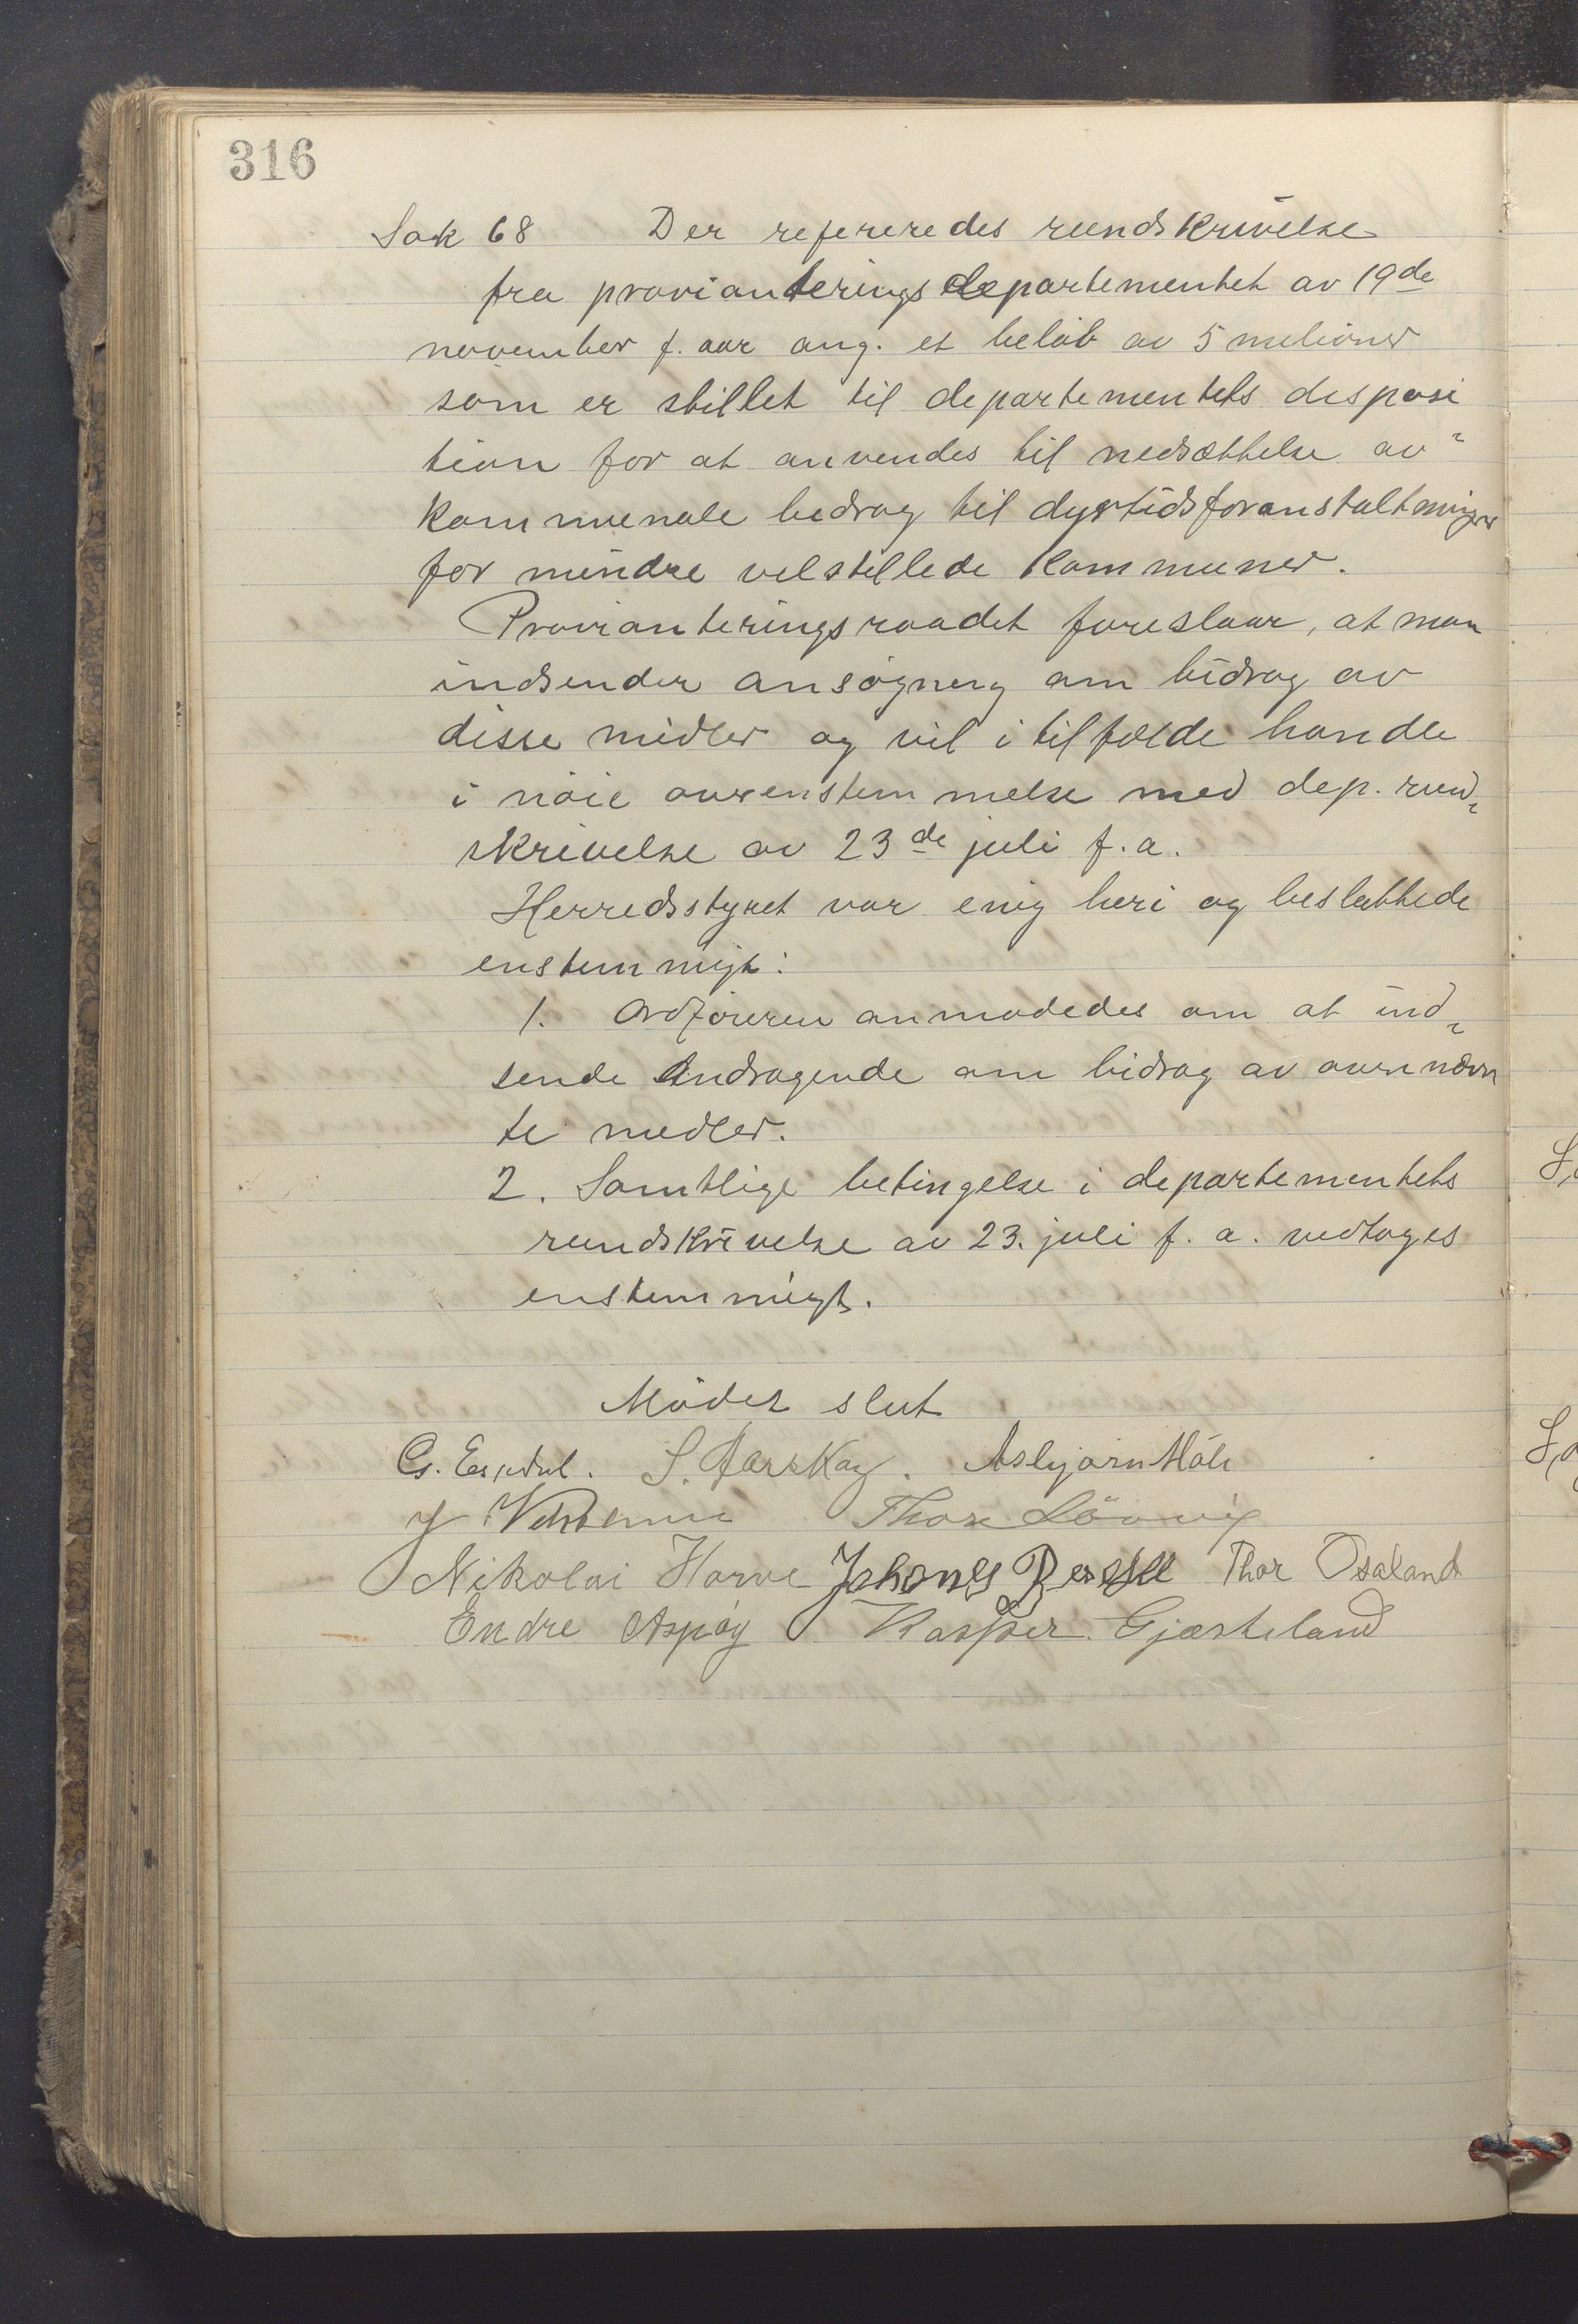 316
Sak 68 Der refereredes rundskrivelse
fra provianteringsdepartementet av 19de
november f. aar ang. et beløb av 5 melioner
som er stillet til departementets disposi
tion for at anvendes til nedsættelse av
kommunale bedrag til dyrtidsforanstaltninger
for mindre velstillede kommuner.
Provianteringsraadet foreslaar, at man
indsender ansøgning om bidrag av
disse midler og vil i tilfælde handle
i nøie overenstemmelse med dep. rund-
skrivelse av 23de juli f. a.
Herredsstyret var enig heri og besluttede
enstemmigt:
1. Ordføreren anmodedes om at ind-
sende andragende om bidrag av ovennævn
te midler.
2. Samtlige betingelse i departementets
rundskrivelse av 23. juli f. a. vedtoges
enstemmigt.
Mødet slut
G. Eskedal. S. Aarskog. Asbjørn
Thore Løvvig
Nikolai Horve Johones Thor Osaland
Endre Aspøy Kasper Gjesteland